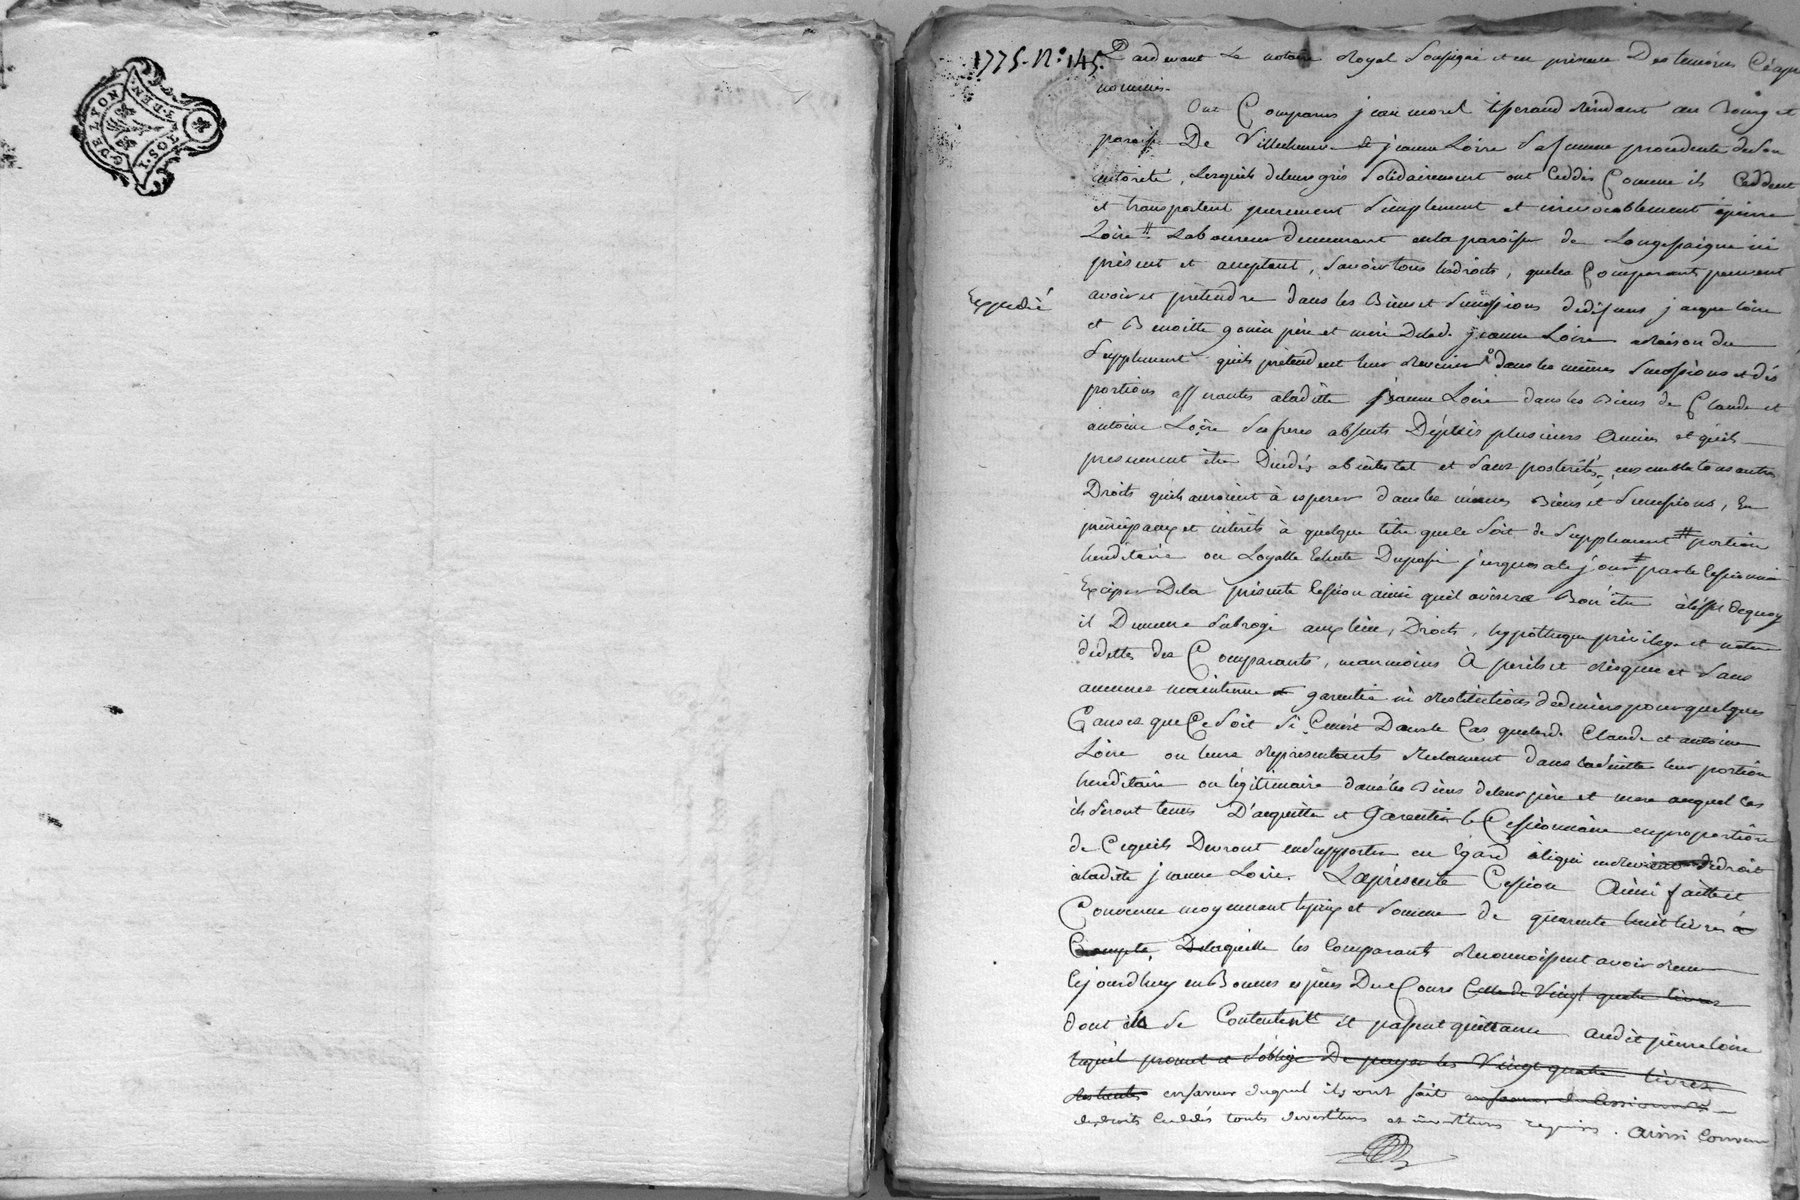 G. DE LYON
1775. N.o 145.
Pardevant Le notaire Royal Soussigné et en présence Des temoins Cy après
nommés.
Ont Comparus jean morel tisserand résidant au Bourg et
paroisse De Villecheneve & jeanne Loire Sa femme procedante de Son
autorité, Lesquels de leurs gris Solidairement ont Ceddés Comme ils Ceddent
et transportent purement Simplement et irrevocablement à pierre
Loire # Laboureur demeurant en la paroisse de Longessaigne ici
présent et acceptant, Savoir tous les droits, que les Comparants peuvent
avoir et prétendre dans les Biens et Successions de défunts jacque Loire
Expedié
et Benoitte gonin père et mère de lad. jeanne Loire à Raison du
Supplement qu'ils prétendent leur Revenir dans les mêmes Successions et dès
portions afferantes a laditte jeanne Loire dans les Biens de Claude et
antoine Loire Ses freres absents Depuis plusieurs Années et qu'ils
presument être Décédés ab intestat et Sans posterités, ensemble tous autres
Droits qu'ils auroient à esperer dans les mêmes Biens et Successions, En
principaux et intérêts à quelque titre que ce Soit de Supplement # portion
hereditaire ou Loyalle Echute Du passé jusques à ce jour # par le Cessionnaire
Exciper De la présente Cession ainsi qu'il avisera Bon être à l'effet de quoy
il Demeure Subrogé aux lieu, Droits, hypotheque privilege et nature
de dettes des Comparants, neanmoins À perils et Risques et Sans
aucunes maintenue garentie ni Restitutions de deniers pour quelques
Causes que Ce Soit Si Ce n'est Dans le Cas que lesd. Claude et antoine
Loire ou leurs Représentants Reclament dans la Suitte leur portion
hereditaire ou légitimaire dans les Biens de leur père et mere auquel cas
ils Seront tenus D'acquitter et Garentir le Cessionnaire en proportion
de Ce qu'ils Devront en Supporter en Egard à ce qui de droit
à laditte jeanne Loire. La présente Cession Ainsi faitte et
Convenue moyennant le prix et Somme de quarente huit livres à
Compte, De laquelle les Comparants Reconnoissent avoir Reçu
Cejourd'huy en Bonnes espèces Du Cours Celle de Vingt quatre livres
dont ils Se Contentent et passent quittance audit pierre Loire
lequel promet et S'oblige De payer les Vingt quatre livres
Restantes en faveur duquel ils ont fait en faveur du Cessionnaire
des droits Ceddés toutes devestitures et investitures requises. Ainsi Convenu